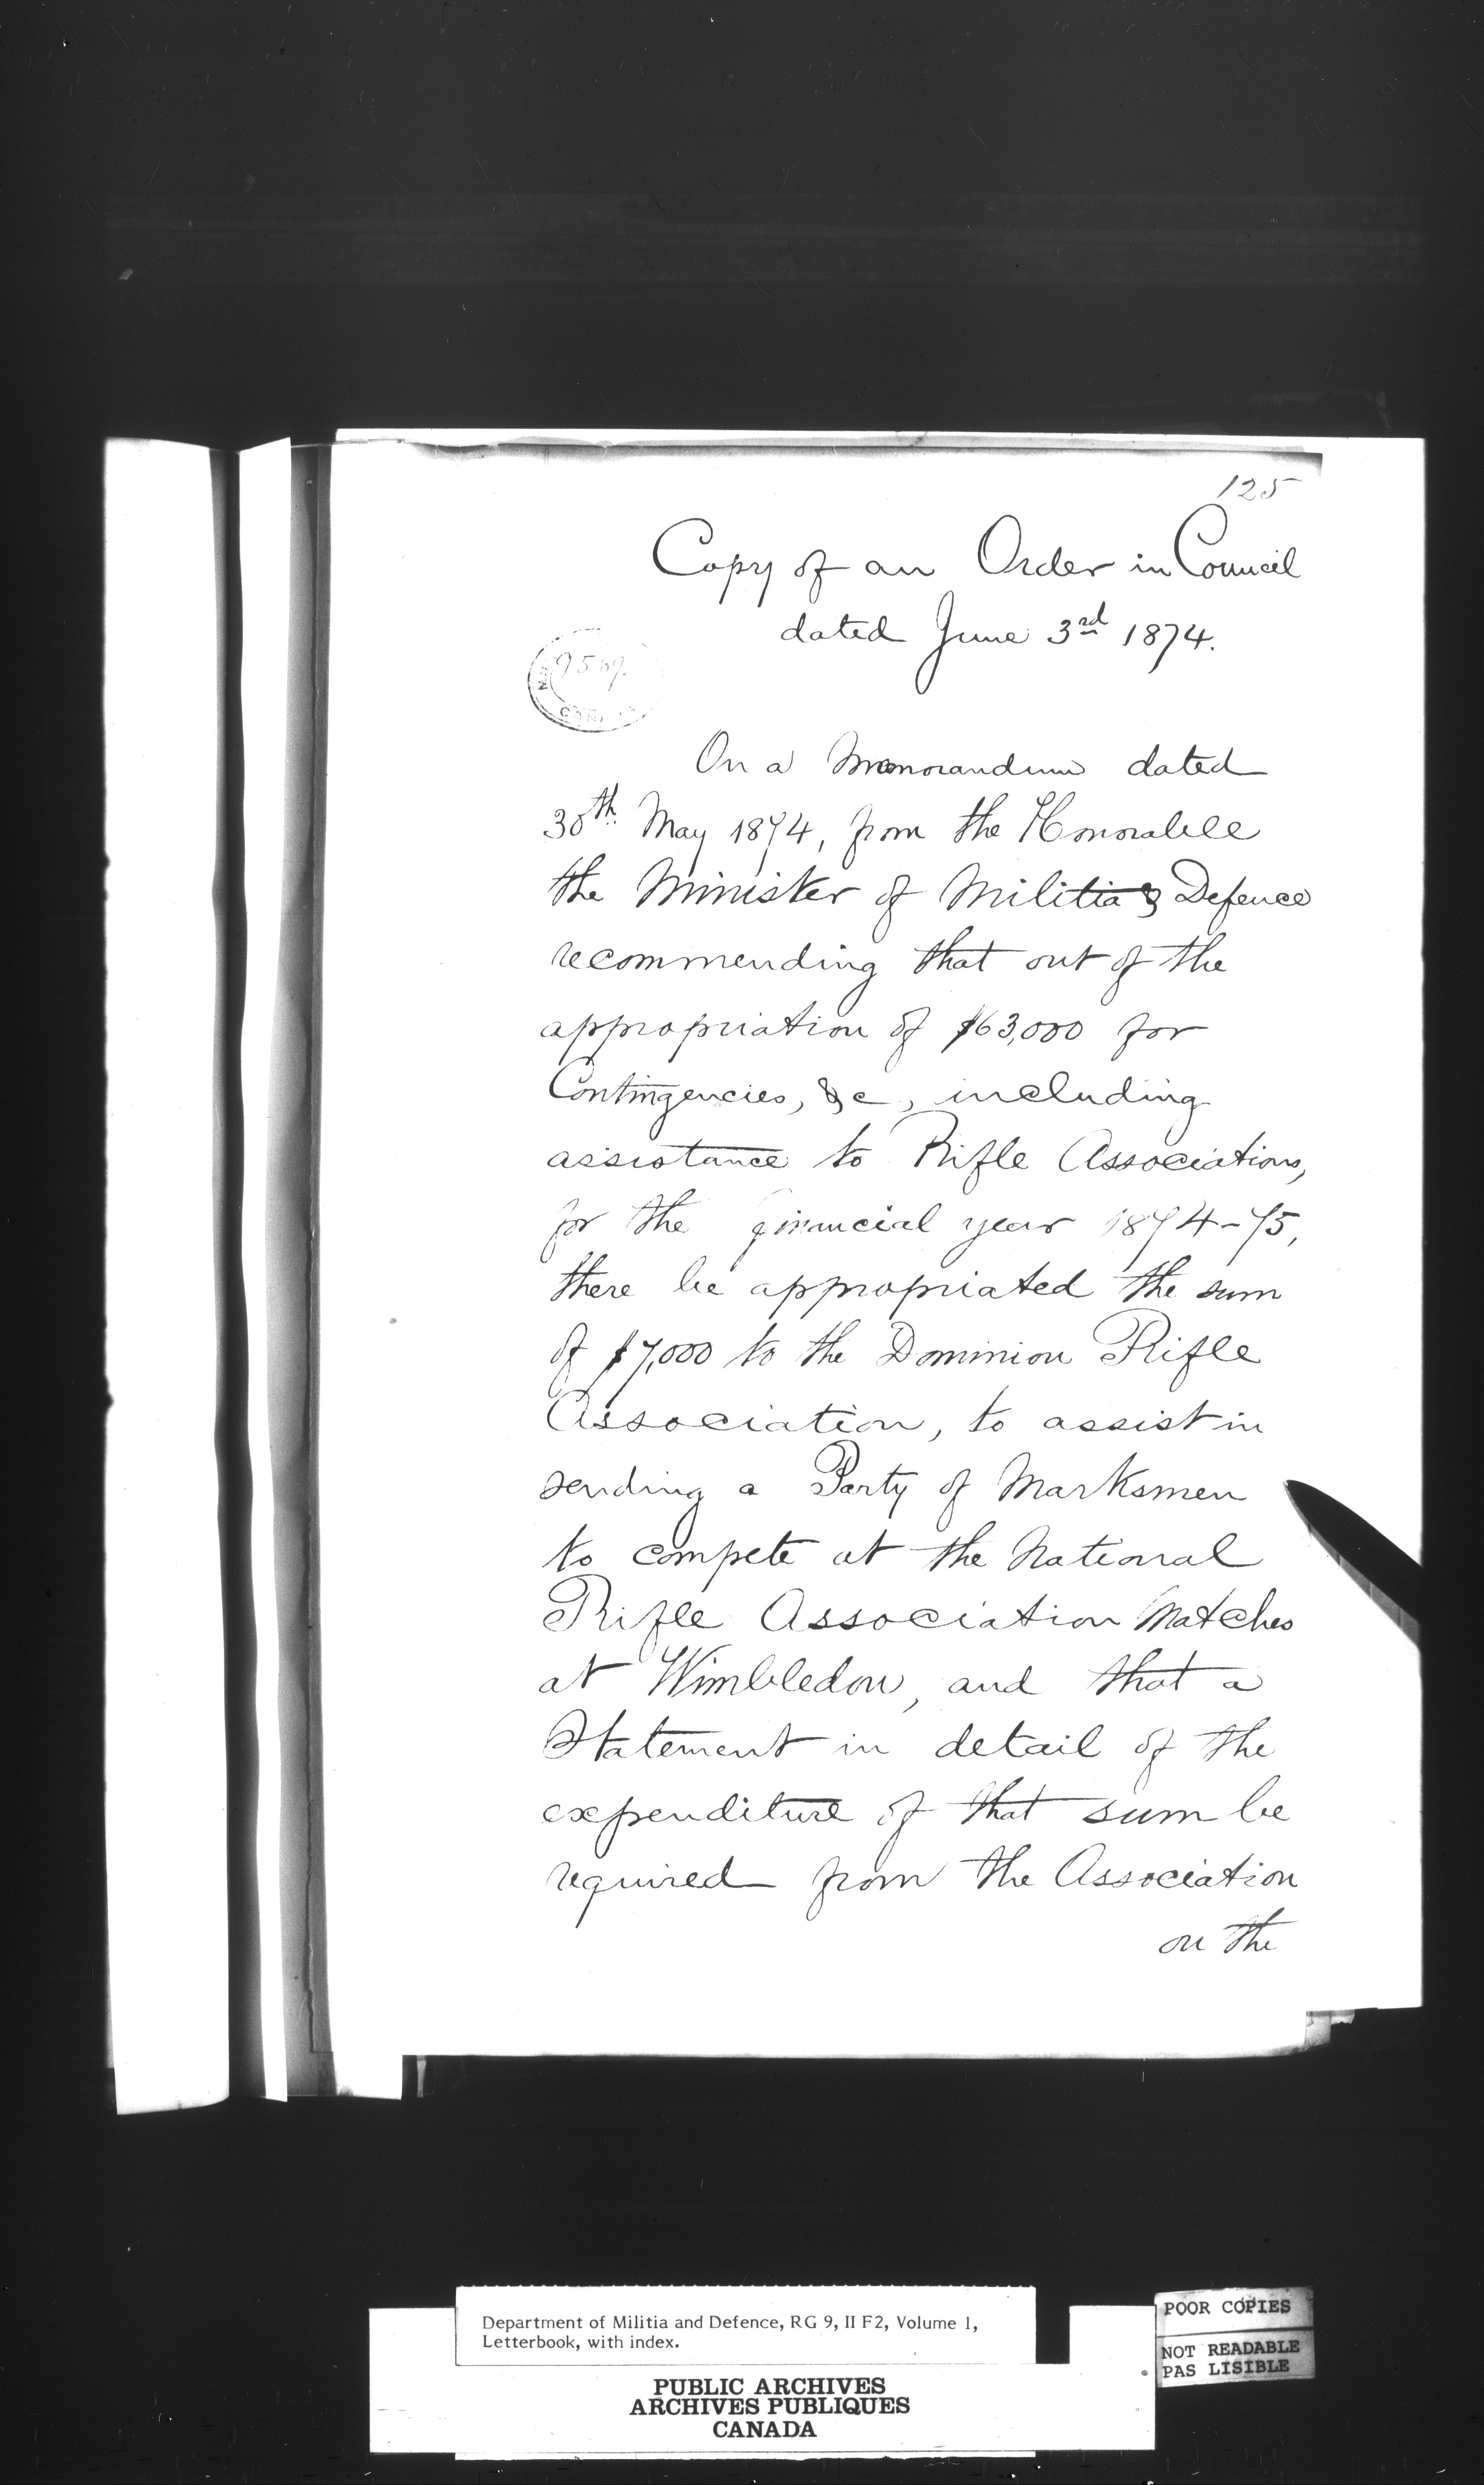 125
Copy of an Order in Council
dated June 3rd 1874.
9589.
On a Memorandum dated
30th May 1874, from the Honorable
the Minister of Militia & Defence
recommending that out of the
appropriation of $63,000 for
Contingencies, &c, including
assistance to Rifle Associations,
for the financial year 1874-75,
there be appropriated the sum
of $7,000 to the Dominion Rifle
Association, to assist in
sending a Party of Marksmen
to compete at the National
Rifle Association Matches
at Wimbledon, and that a
Statement in detail of the
expenditure of that sum be
required from the Association
on the
Department of Militia and Defence, RG 9, II F2, Volume 1,
Letterbook, with index.
PUBLIC ARCHIVES
ARCHIVES PUBLIQUES
CANADA
POOR COPIES
NOT READABLE
PAS LISIBLE